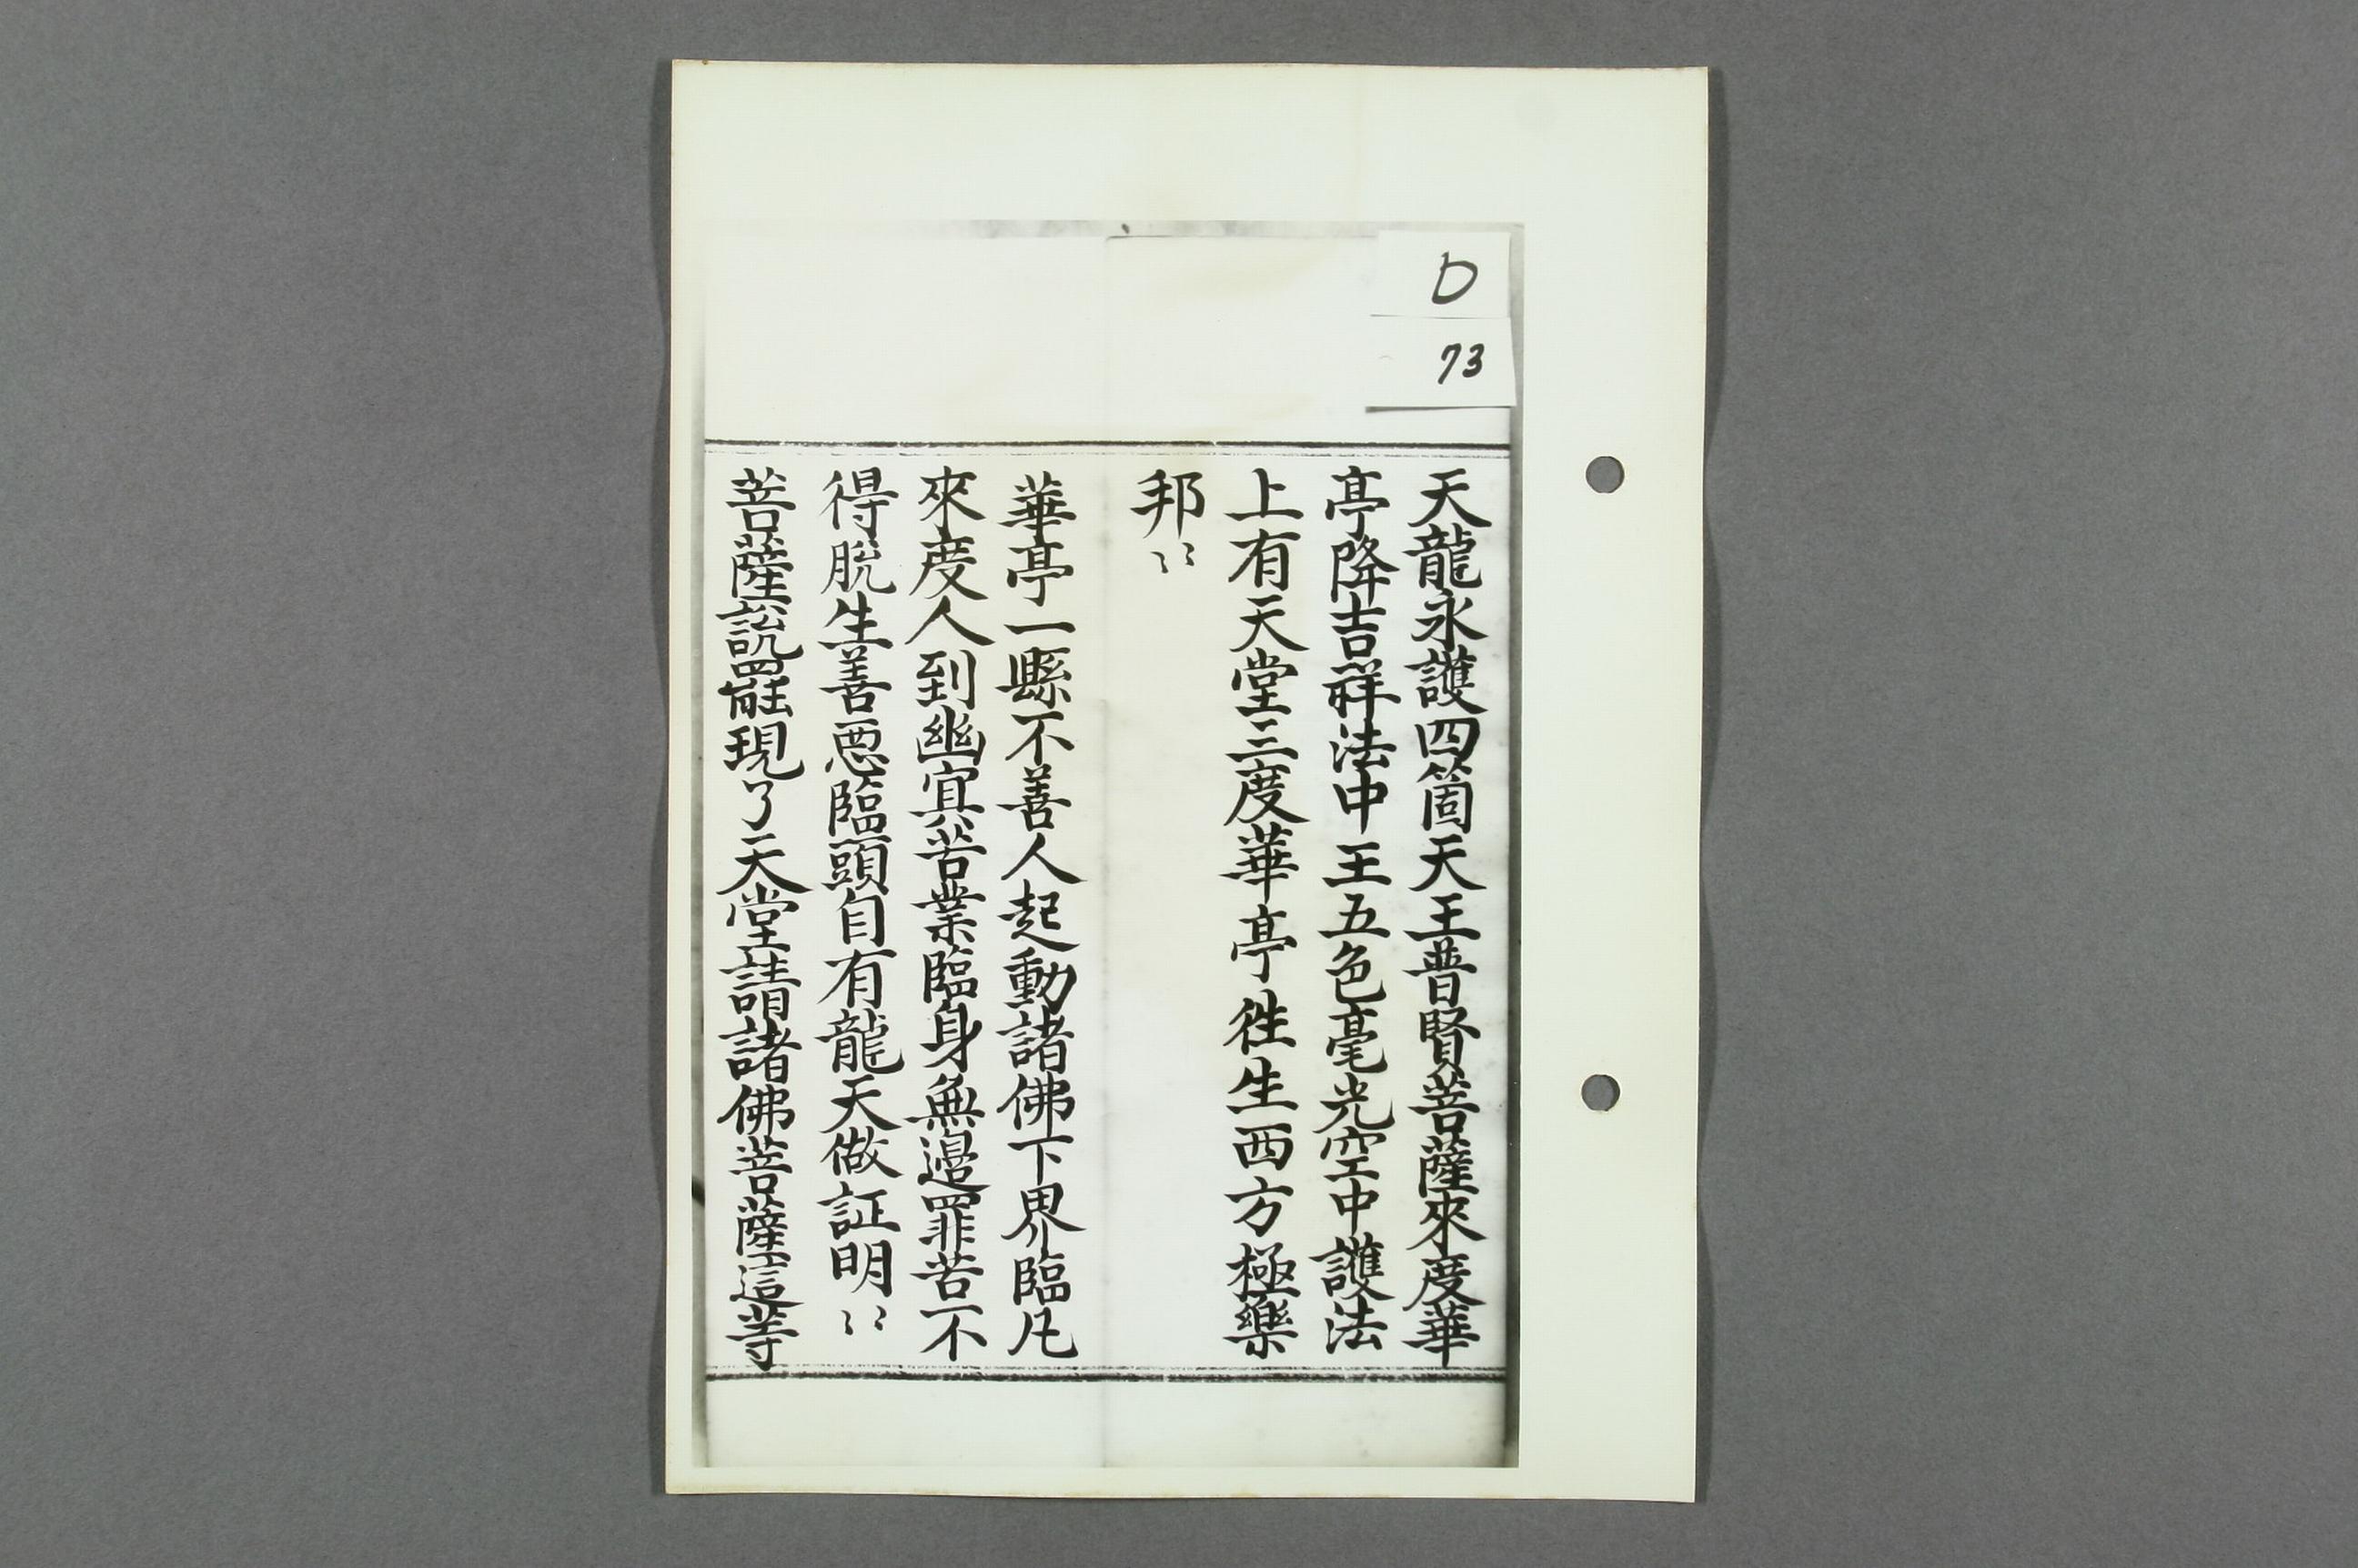 D
73
天龍永護四箇天王普賢菩薩來度華
亭降吉祥法中王五色毫光空中護法
上有天堂三度華亭徃生西方極樂
邦〻
華亭一縣不善人起動諸佛下界臨凡
來度人到幽冥苦業臨身無邊罪苦不
得脫生善惡臨頭自有龍天做証明〻
菩薩說罷現了天堂請諸佛菩薩這等